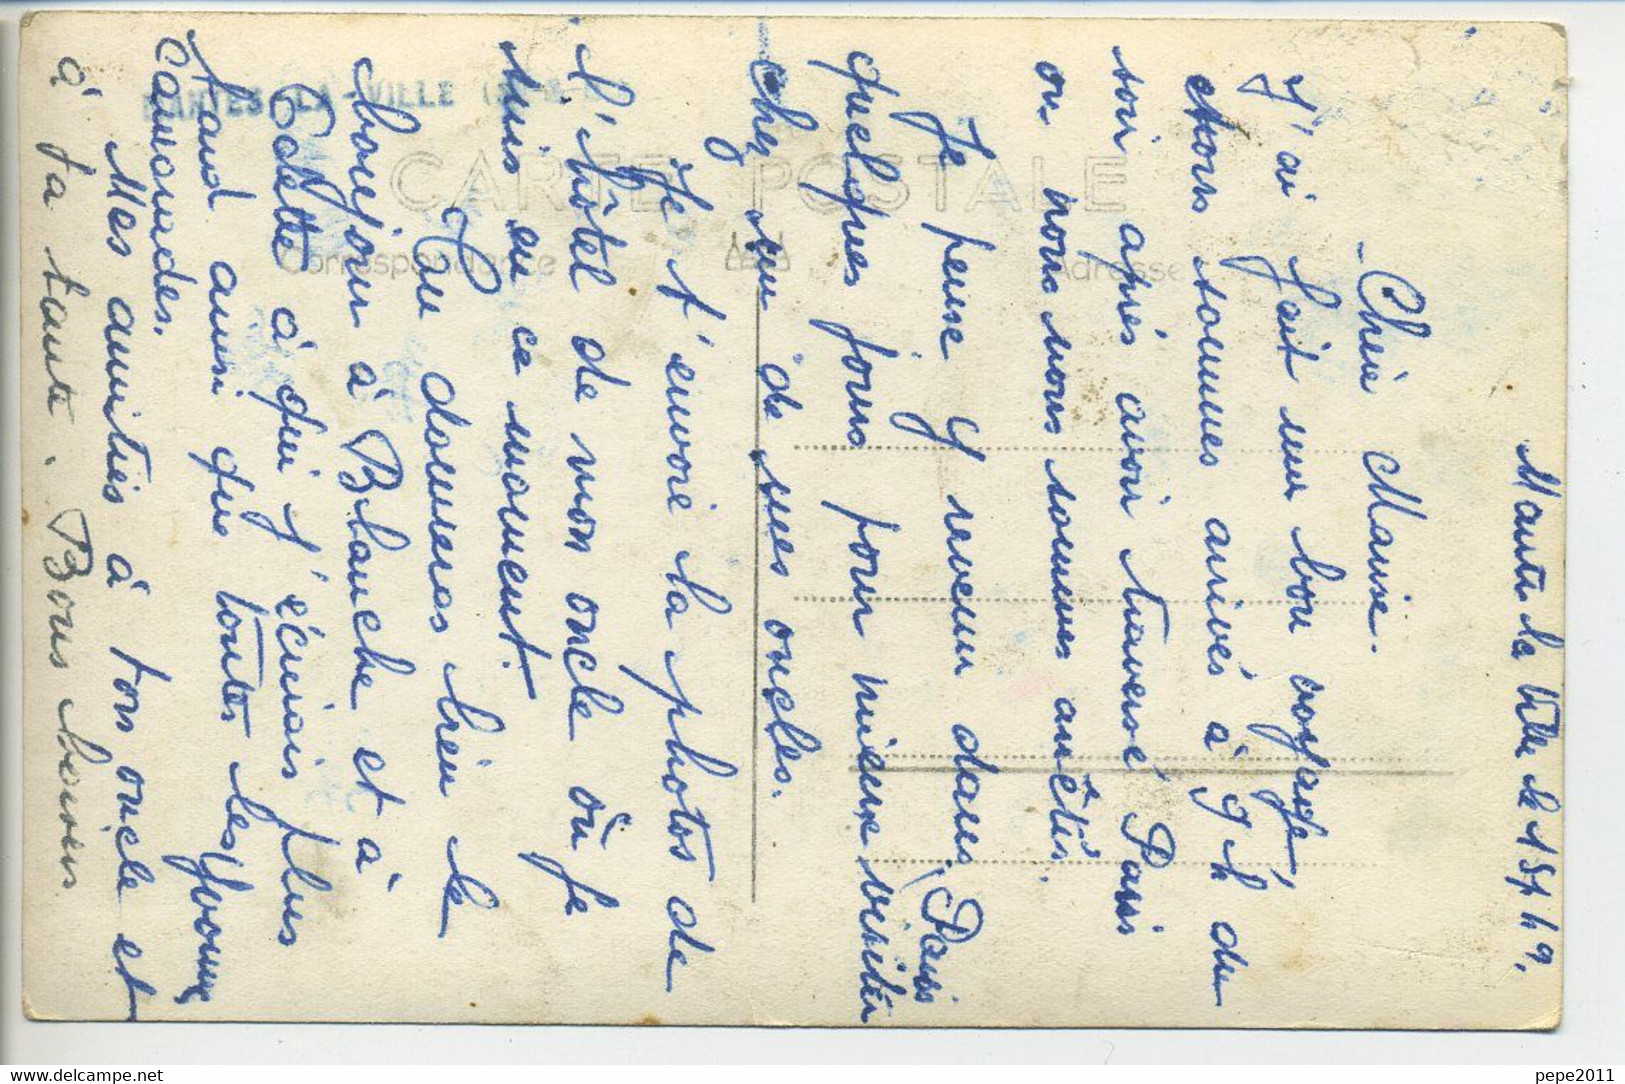 Mante la Ville le 15/4 49.
Chère Maurise.
J'ai fait un bon voyage,
et nous sommes arrivés à 9 h du
soir après avoir traversé Paris
ou nous nous sommes arrêtés.
Je pense y revenir dans Paris
quelques jours pour mieux visiter
chez un de mes oncles.
Je t'envoie la photos de
l'hôtel de mon oncle où je
suis en ce moment.
Tu donneras bien le
bonjour à Blanche et à
Odette à qui j'écrirais plus
tard ainsi que toutes les
camarades.
Mes amitiés à ton oncle et
à ta tante. Bons baisers
Yvonne
CARTE POSTALE
Correspondance
Adresse
MANTES-LA-VILLE
pepe2011